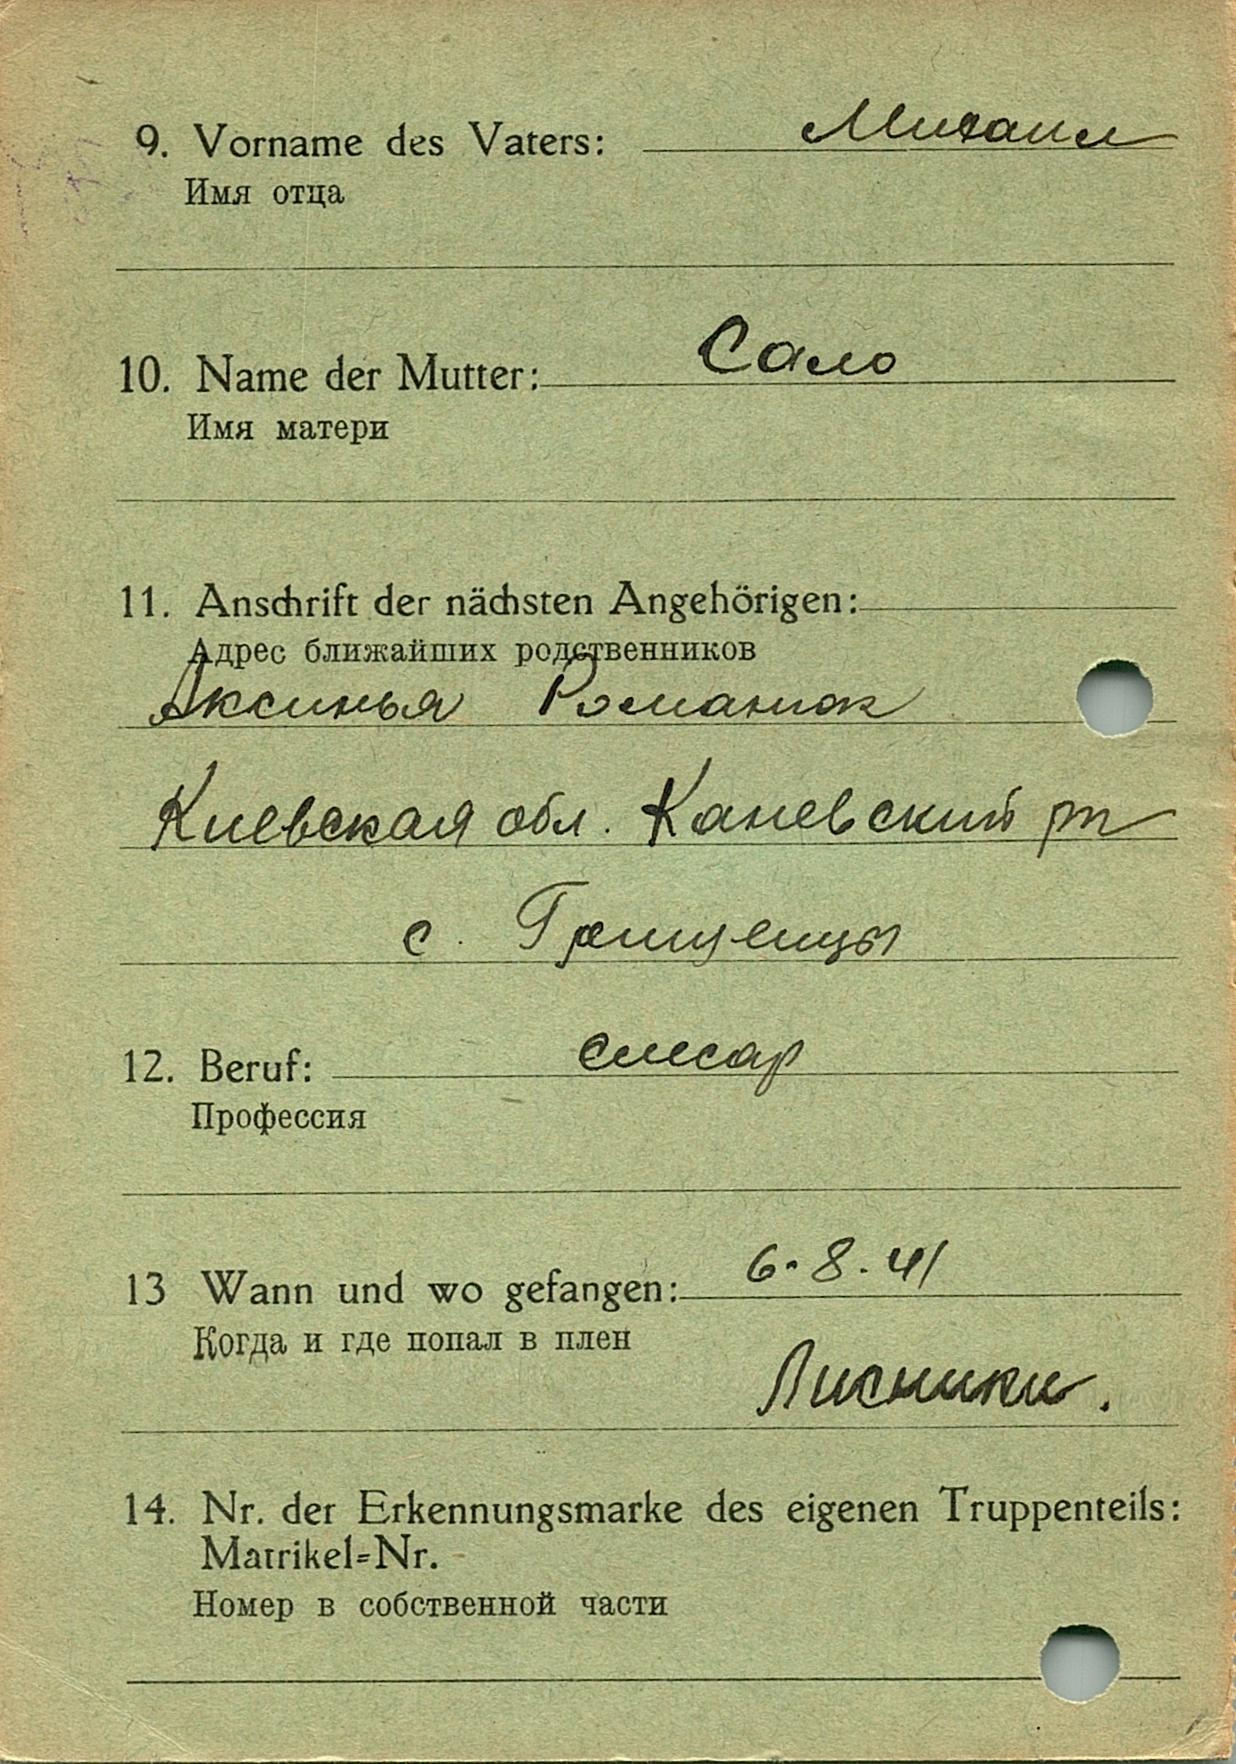 9. Vorname des Vaters: Михаил
Имя отца
10. Name der Mutter: Сало
Имя матери
11. Anschrift der nächsten Angehörigen:
Адрес ближайших родственников
Аксинья Романюк
Киевская обл. Каневский рн
с. Грищенцы
12. Beruf: слесар
Профессия
13 Wann und wo gefangen: 6.8.41
Когда и где попал в плен
Лисники.
14. Nr. der Erkennungsmarke des eigenen Truppenteils:
Matrikel=Nr.
Номер в собственной части